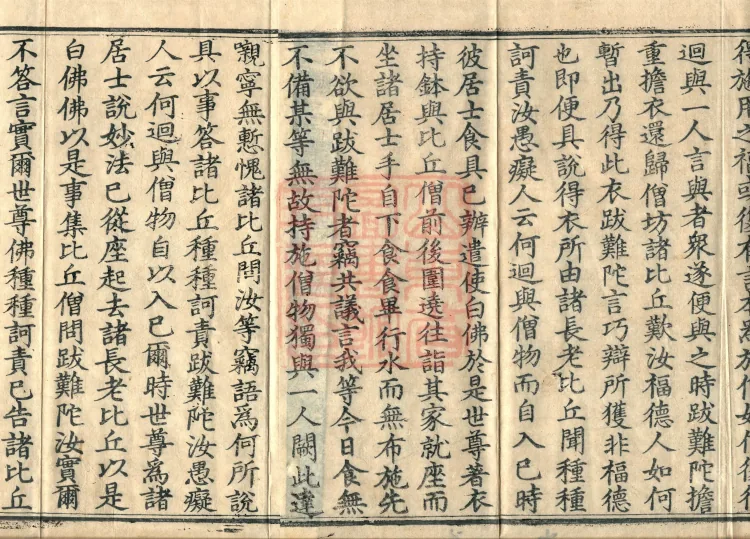 迴與一人言與者衆遂便與之時跋難陀擔
重擔衣還歸僧坊諸比丘歎汝福德人如何
暫出乃得此衣跋難陀言巧辯所獲非福德
也即便具說得衣所由諸長老比丘聞種種
訶責汝愚癡人云何迴與僧物而自入巳時
彼居士食具巳辨遣使白佛於是世尊著衣
持鉢與比丘僧前後圍遶往詣其家就座而
坐諸居士手自下食食畢行水而無布施先
不欲與跋難陀者竊共議言我等今日食無
不備某等無故持施僧物獨與一人闕此達
嚫寧無慙愧諸比丘問汝等竊語爲何所說
具以事答諸比丘種種訶責跋難陀汝愚癡
人云何迴與僧物自以入巳爾時世尊爲諸
居士說妙法巳從座起去諸長老比丘以是
白佛佛以是事集比丘僧問跋難陀汝實爾
不答言實爾世尊佛種種訶責巳告諸比丘